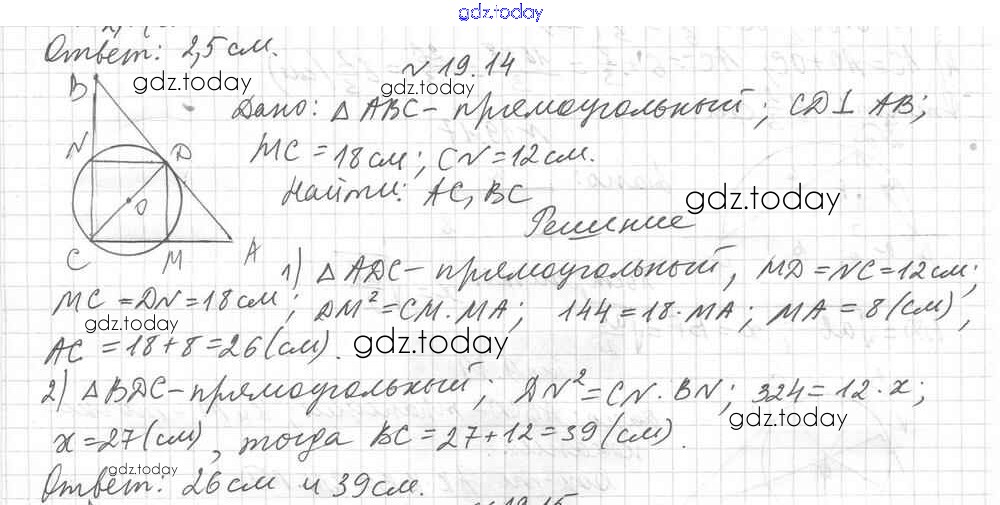 gdz.today
Ответ: 2,5 см.
gdz.today
№ 19.14
B
Дано: △ ABC - прямоугольный; CD⊥ AB;
N
D
MC = 18 см; CN = 12 см.
Найти: AC, BC
gdz.today
O
Решение
C
M
A
1) △ ADC - прямоугольный, MD = NC = 12 см;
MC = DN = 18 см; DM² = CM · MA; 144 = 18 · MA; MA = 8 (см),
gdz.today
AC = 18 + 8 = 26 (см).
gdz.today
2) △ BDC - прямоугольный; DN² = CN · BN; 324 = 12 · x;
gdz.today
x = 27 (см), тогда BC = 27 + 12 = 39 (см).
gdz.today
Ответ: 26 см и 39 см.